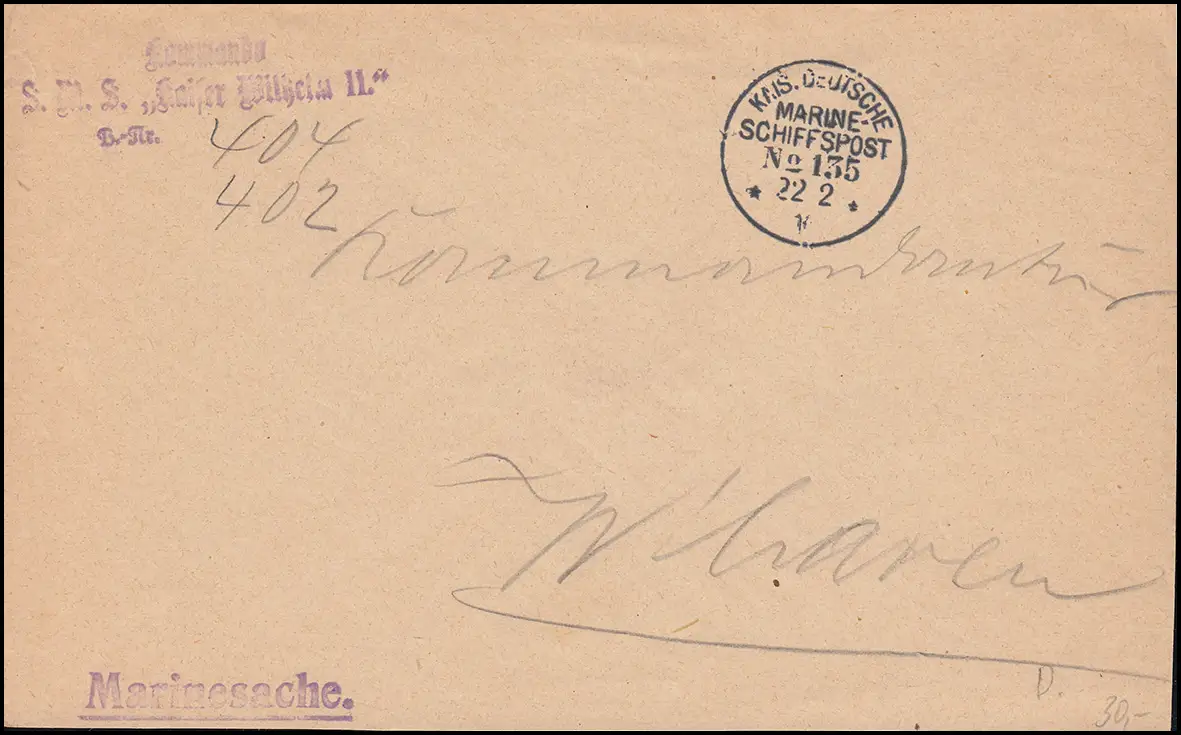 Kommando
S. M. S. „Kaiser Wilhelm II.“
B.-Nr. 404
402
KAIS. DEUTSCHE
MARINE-
SCHIFFSPOST
No 135
* 22 2 *
Kommandantur
W'haven
Marinesache.
30,-